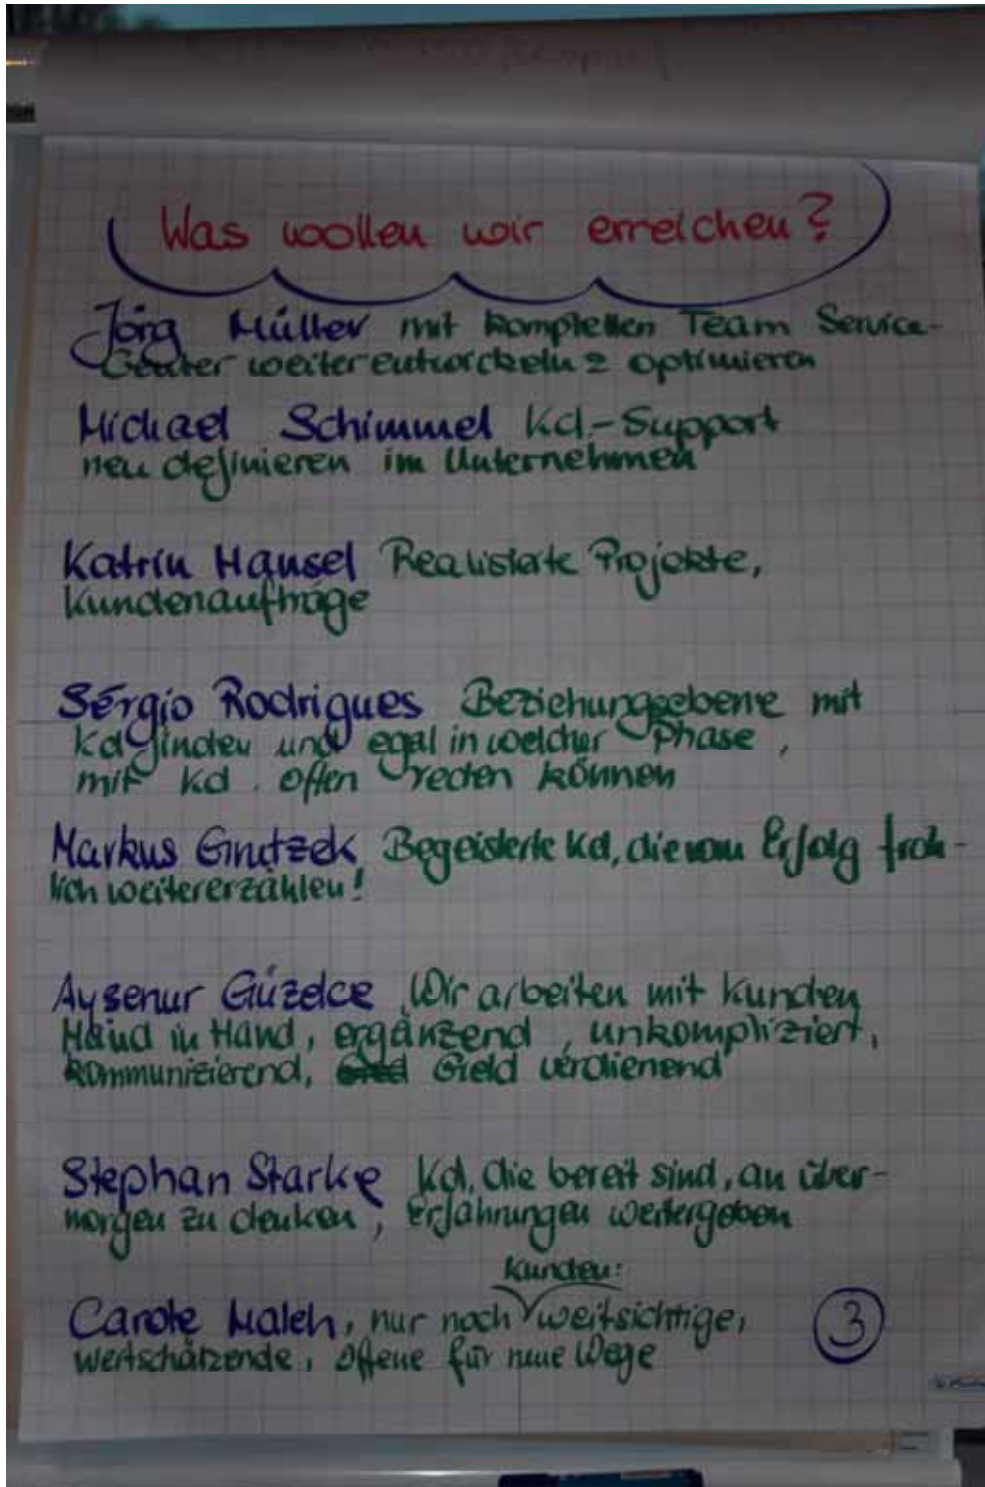 Was wollen wir erreichen?
Jörg Müller mit kompletten Team Service-
Center weiterentwickeln & optimieren
Michael Schimmel Kd.-Support
neu definieren im Unternehmen
Katrin Hansel Realisierte Projekte,
Kundenaufträge
Sérgio Rodrigues Beziehungsebene mit
Kd finden und egal in welcher Phase,
mit Kd. offen reden können
Markus Grutzek Begeisterte Kd, die vom Erfolg fröh-
lich weitererzählen!
Aysenur Güzelce Wir arbeiten mit Kunden
Hand in Hand, ergänzend, unkompliziert,
kommunizierend, Geld verdienend
Stephan Starke Kd, die bereit sind, an über-
morgen zu denken, Erfahrungen weitergeben
Kunden:
Carole Maleh, nur noch weitsichtige,
wertschätzende, offene für neue Wege
3